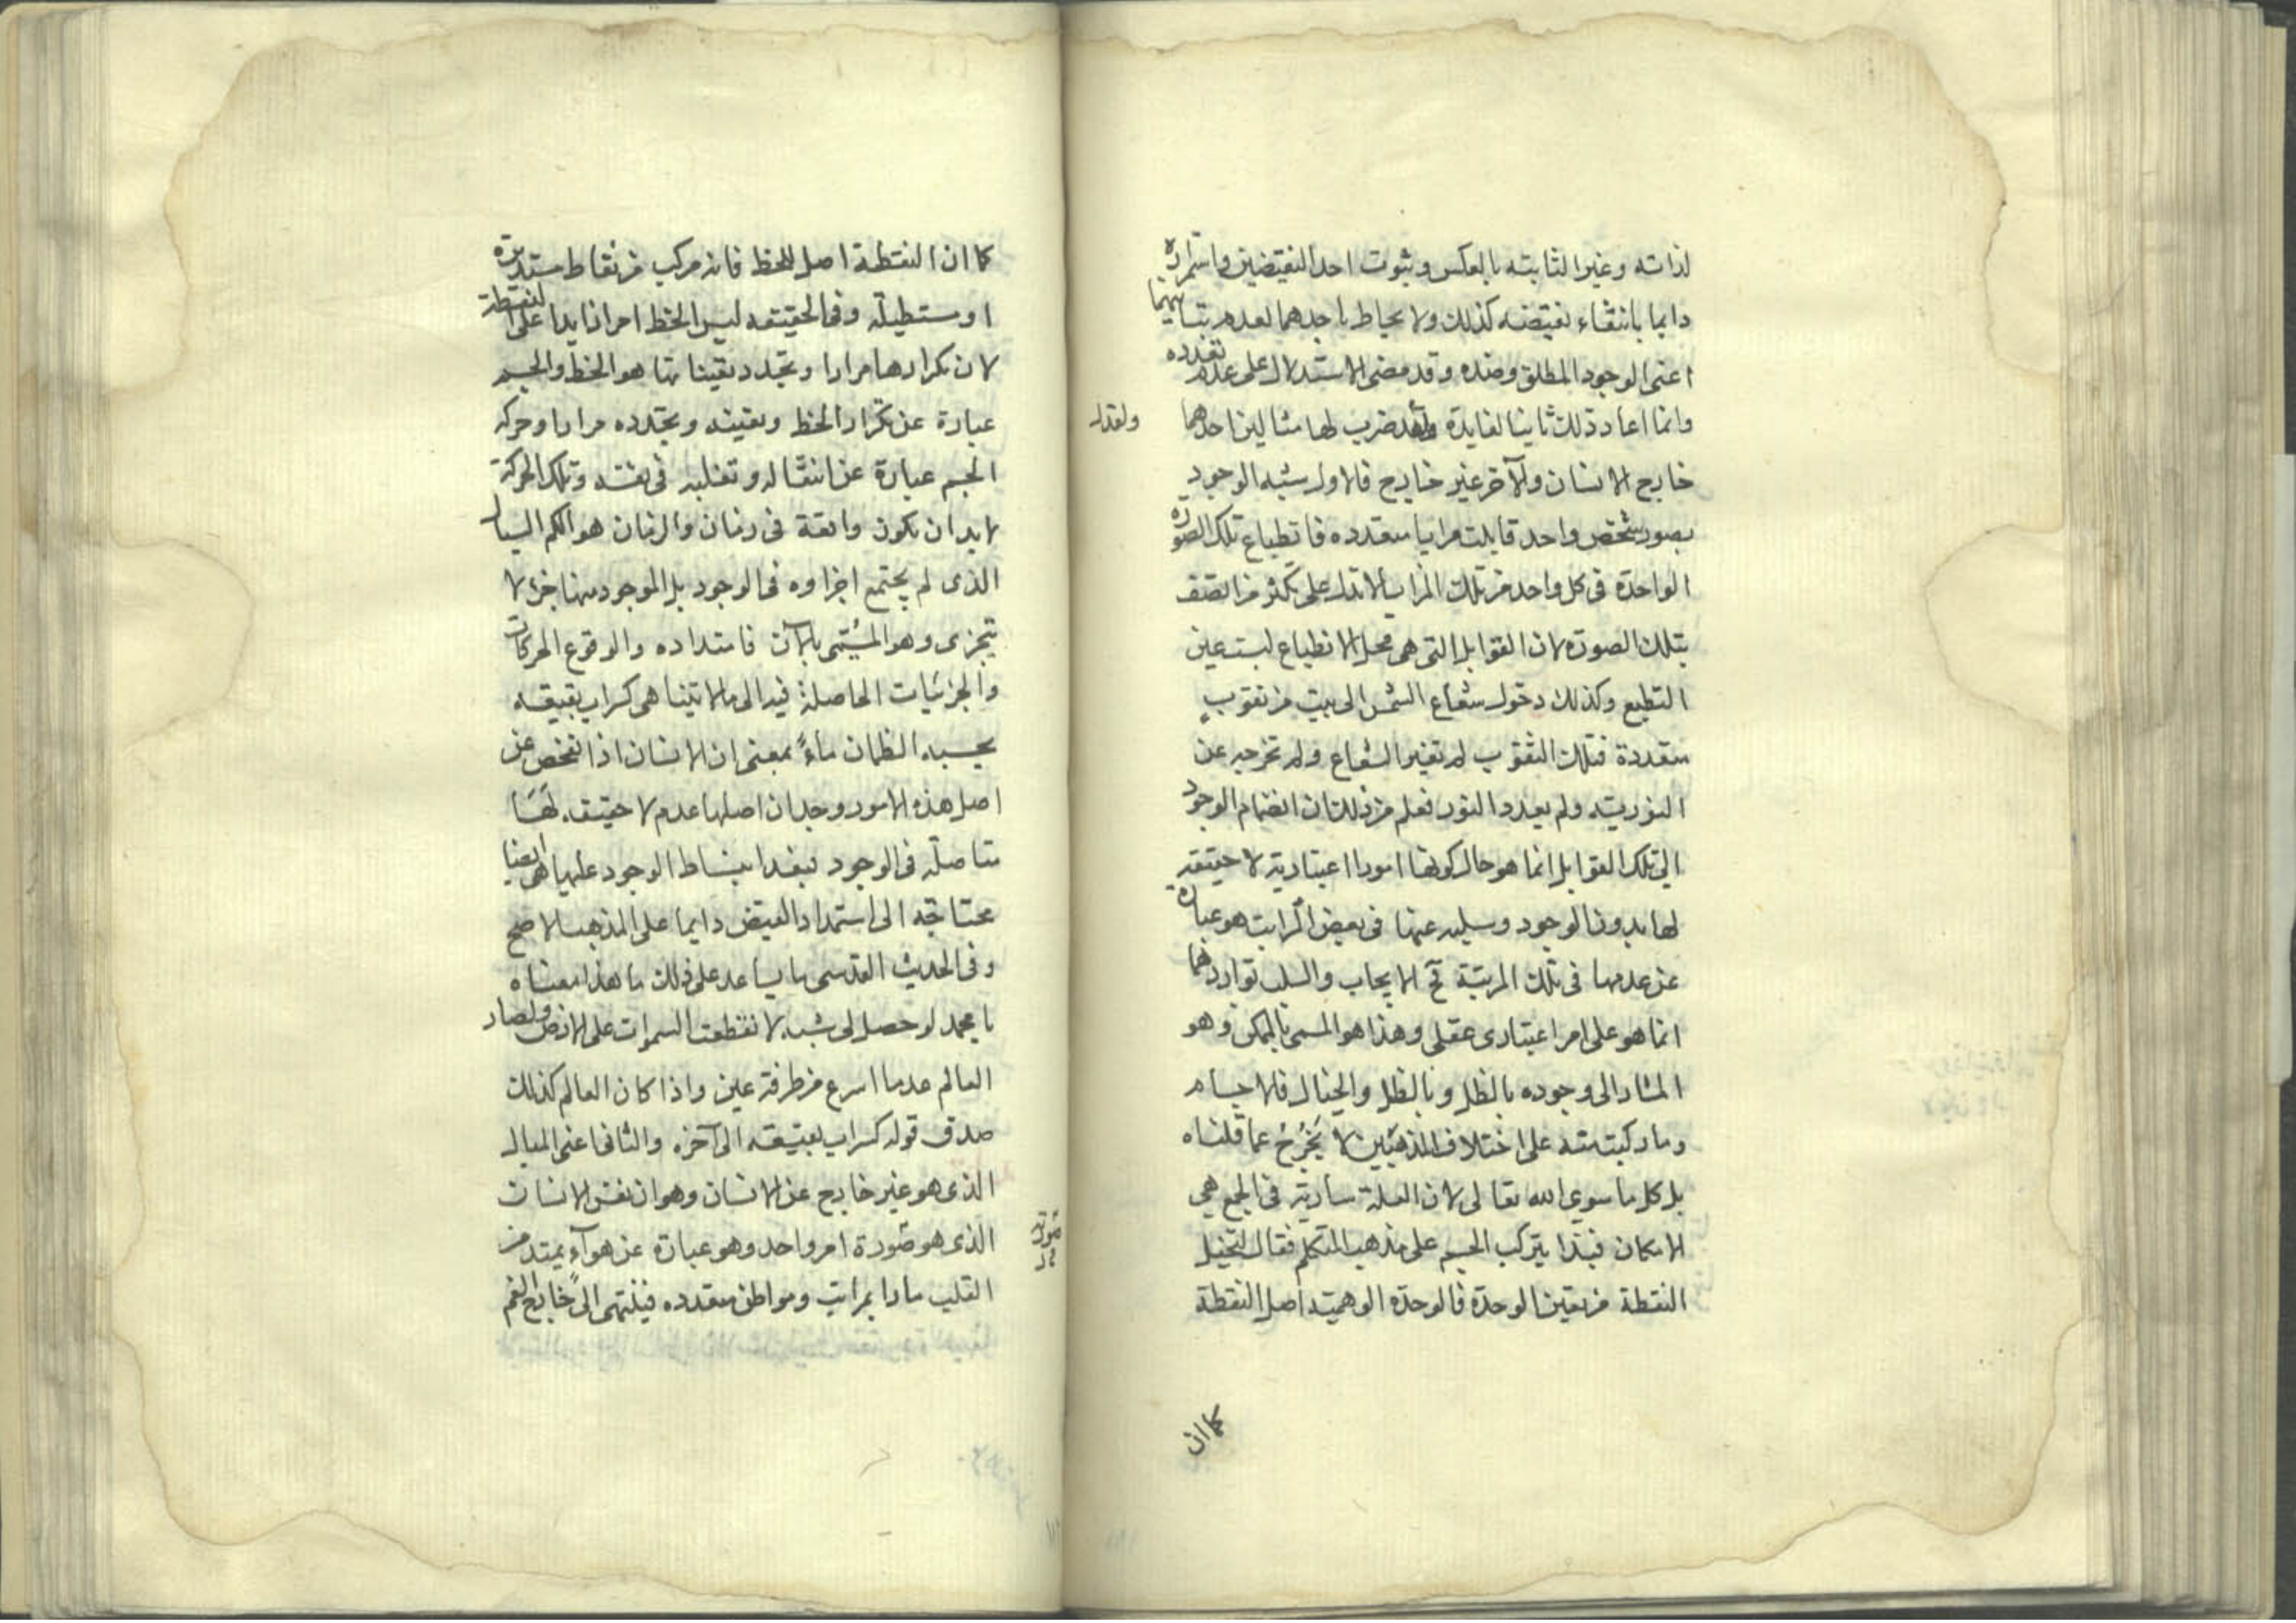 لذاته وغير الثابته بالعكس وبثوت احد النقيضين واستمراره
دايما بانتفاء نقيضه كذلك ولا يحاط باحدهما لعدم تناهيهما
اعنى الوجود المطلق وضده وقد مضى الاستدلال على عدم تعدده
وانما اعاد ذلك ثانيا لفايدة ولقد ضرب لها مثالين احدهما
ولقد
خارج الانسان والآخر غير خارج فالاول شبه الوجود
بصورة شخص واحد قابلت مرايا متعدده فانطباع تلك الصورة
الواحدة فى كل واحد من تلك المرايا لا تدل على تكثر من اتصف
بتلك الصورة لان القوابل التى هى محل الانطباع ليست عين
التطبع وكذلك دخول شعاع الشمس الى بيت من نقوب
متعددة فتلك الثقوب لم تغير الشعاع ولم تخرجه عن
النوريته ولم يعدد النور فعلم من ذلك ان انضمام الوجود
الى تلك القوابل انما هو حال كونها امورا اعتبارية لا حقيقة
لها بدون الوجود وسلبه عنها فى بعض المراتب هو عبارة
عن عدمها فى تلك المرتبة تح الايجاب والسلب تواردهما
انما هو على امر اعتبارى عقلى وهذا هو المسمى بالممكن وهو
المشار الى وجوده بالظل وبالظل والخيال فالاجسام
وما ركبت منه على اختلاف المذهبين لا يخرج عما قلناه
بل كل ما سوى الله تعالى لان العلة سارية فى الجمع هى
الامكان فبذا يتركب الجسم على مذهب المتكلم فقال لتخيل
النقطة من تعين الوحدة فالوحدة الوهميته اصل النقطة
كما ان
كما ان النقطة اصل للخط فانه مركب من نقاط مستديرة
او مستطيلة وفى الحقيقه ليس الخط امرا زايدا على النقطة
لان تكرارها مرارا وتجدد تعيناتها هو الخط والجسم
عبارة عن تكرار الخط وتعينه وتجدده مرارا وحركه
الجسم عبارة عن انتقاله وتقلبه فى نفسه وتلك الحركة
لابد ان تكون واقعة فى زمان والزمان هو الكم السيال
الذى لم يجتمع اجزاوه فى الوجود بل الموجود منها جزء لا
يتجزى وهو المسمى بالآن فامتداده والوقوع الحركات
والجزئيات الحاصلة فيه الى ما لا تيناهى كسراب بقيعه
يحسبه الظمان ماءً بمعنى ان الانسان اذا تفحص عن
اصل هذه الامور وجد ان اصلها عدم لا حقيقه لها
متاصلة فى الوجود فبعد انبساط الوجود عليها هى ايضا
محتاجة الى استمداد الفيض دايما على المذهب الاصح
وفى الحديث القدسى ما يساعد على ذلك ما هذا معناه
يا محمد لو حصل لى شبه لانقطعت السموات على الارض ولصار
العالم عدما اسرع من طرفة عين واذا كان العالم كذلك
صدق قوله كسراب بقيعته الى آخره والثانى اعنى المبال
الذى هو غير خارج عن الانسان وهو ان نفس الانسان
الذى هو صورة امر واحد وهو عبارة عن هواء يمتد من
القلب مارا بمراتب ومواطن متعدده فينتهى الى خارج الفم